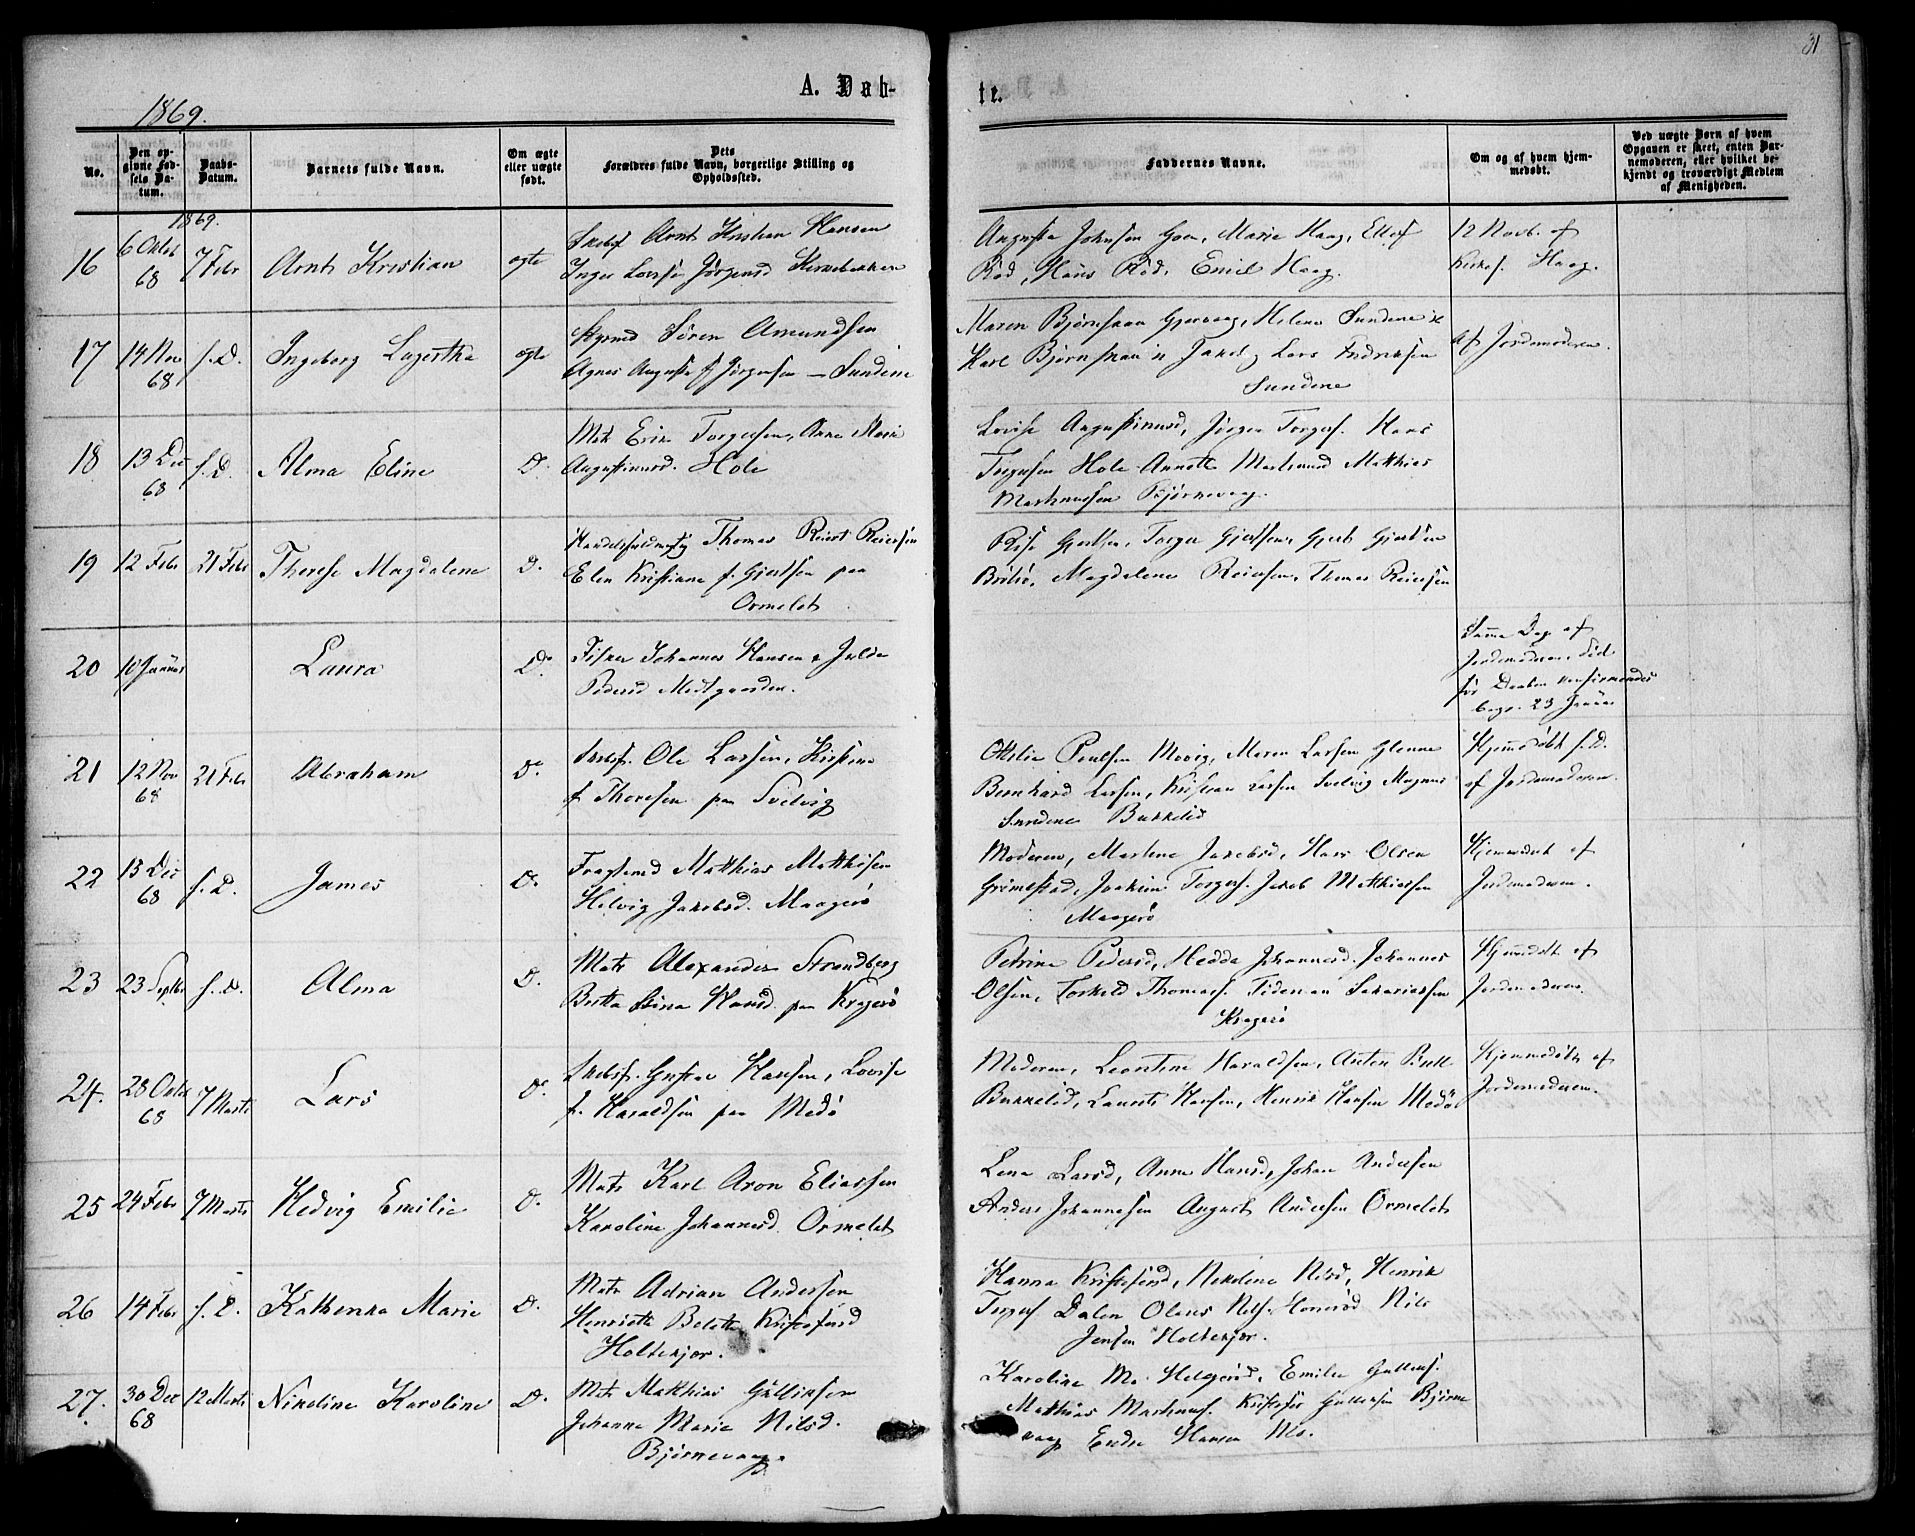 31
1869.
A. Døb-
te.
No.
Den op-
givne Fød-
sels Da-
tum.
Daabs-
Datum.
Barnets fulde Navn.
Om ægte
eller uægte
født.
Dets
Forældres fulde Navn, borgerlige Stilling og
Opholdssted.
Faddernes Navne.
Om og af hvem hjem-
medøbt.
Ved uægte Børn af hvem
Opgaven er skeet, enten Bar-
nemoderen, eller hvilket be-
kjendt og troværdigt Medlem
af Menigheden.
1869.
16
6 Octob
68
7 Febr
Arnt Kristian
ægte
Arnt Kristian Hansen
Inger Lovise Jörgensd
Augusta Johnsen Goen, Marie Haag,
Röd, Hans Röd, Emil Haag.
12 Novb. af
Kirkes. Haag.
17
14 Nov
68
s. D.
Ingeborg Lagertha
ægte
Sören Amundsen
Agnes Augusta f Jörgensen – Sundene
Maren Björnskau Gjervaag, Helene Sundene
Karl Björnskau Jakob Lars Fredriksen
Sundene
af Jordemoderen.
18
13 Dec
68
s. D.
Alma Eline
D.
Mat Erik Torgersen, Anne Marie
Augustinusd. Hole
Lovise Augustinusd, Jörgen Torgers. Hans
Torgersen Hole Annette Mathias
Markussen Bjørnevaag.
19
12 Febr
21 Febr
Therese Magdalene
D.
Handelsfuldmægtig Thomas Reiert Reiersen
Elen Kristiane f. Gjertsen paa
Ormelet
Gjertsen, Torger Gjertsen, Gjert Gjertsen
Magdalene Reiersen, Thomas Reiersen
20
10 Januar
Laura
Do
Fisker Johannes Hansen & Julie
Pedersd Medtgaarden.
Samme Dag af
Jordemoderen, död
før Daaben
begr. 23 Januar
21
12 Nov
68
21 Febr
Abraham
Do
Skibsf. Ole Larsen, Kirstine
f. Thoresen paa Svelvig
Ottilia Poulsen Movig, Maren Larsen Glenne
Bernhard Larsen, Kristian Larsen Svelvig Magnus
Sundene Bukkelid
Hjemmedøbt s. D.
af Jordemoderen.
22
13 Dec
68
s. D.
James
D.
Mathias Mathisen
Helvig Jakobsd. Maagerö
Moderen, Martine Jakobsd, Hans Olsen
Grimestad, Joakim Torgers. Jakob Mathiassen
Maagerö
Hjemmedøbt af
Jordemoderen.
23
23 Septbr
s. D.
Alma
D.
Mats Alexander Strandberg
Berthe Stina Hansd. paa Kragerö
Petrine Pedersd, Hedda Johannesd. Johannes
Olsen, Torkild Thomas. Tideman Sakariassen
Kragerö
Hjemmedøbt af
Jordemoderen.
24.
28 Octob
68
7 Marts
Lars
Do
Skibsf. Gustav Hansen, Lovise
f. Haraldsen paa Medö
Moderen, Leontine Haraldsen, Anton Bull
Bukkelid, Laurits Hansen, Henrik Hansen Medö
Hjemmedøbt af
Jordemoderen.
25
24 Febr
7 Marts
Hedvig Emilie
D.
Mats Karl Aron Eliassen
Karoline Johannesd. Ormelet
Lena Larsd, Anne Hansd, Johan Andersen
Anders Johannesen August Andersen Ormelet
26
14 Febr
s. D.
Kathinka Marie
D.
Mats Adrian Andersen
Henriette Belette Kristofersd
Holtekjær.
Hanna Kristofersd, Nikoline Nilsd, Henrik
Torgers Dalen Olaus Nils
Jensen Holtekjær.
27.
30 Dec
68
12 Marts
Nikoline Karoline
D.
Mats Mathias Gulliksen
Johanne Marie Nilsd.
Bjørnevaag.
Karoline Helgeröd, Emilie Gulliks.
Mathias Markuss. Kristofer Gulliksen Bjørne
vaag Hansen